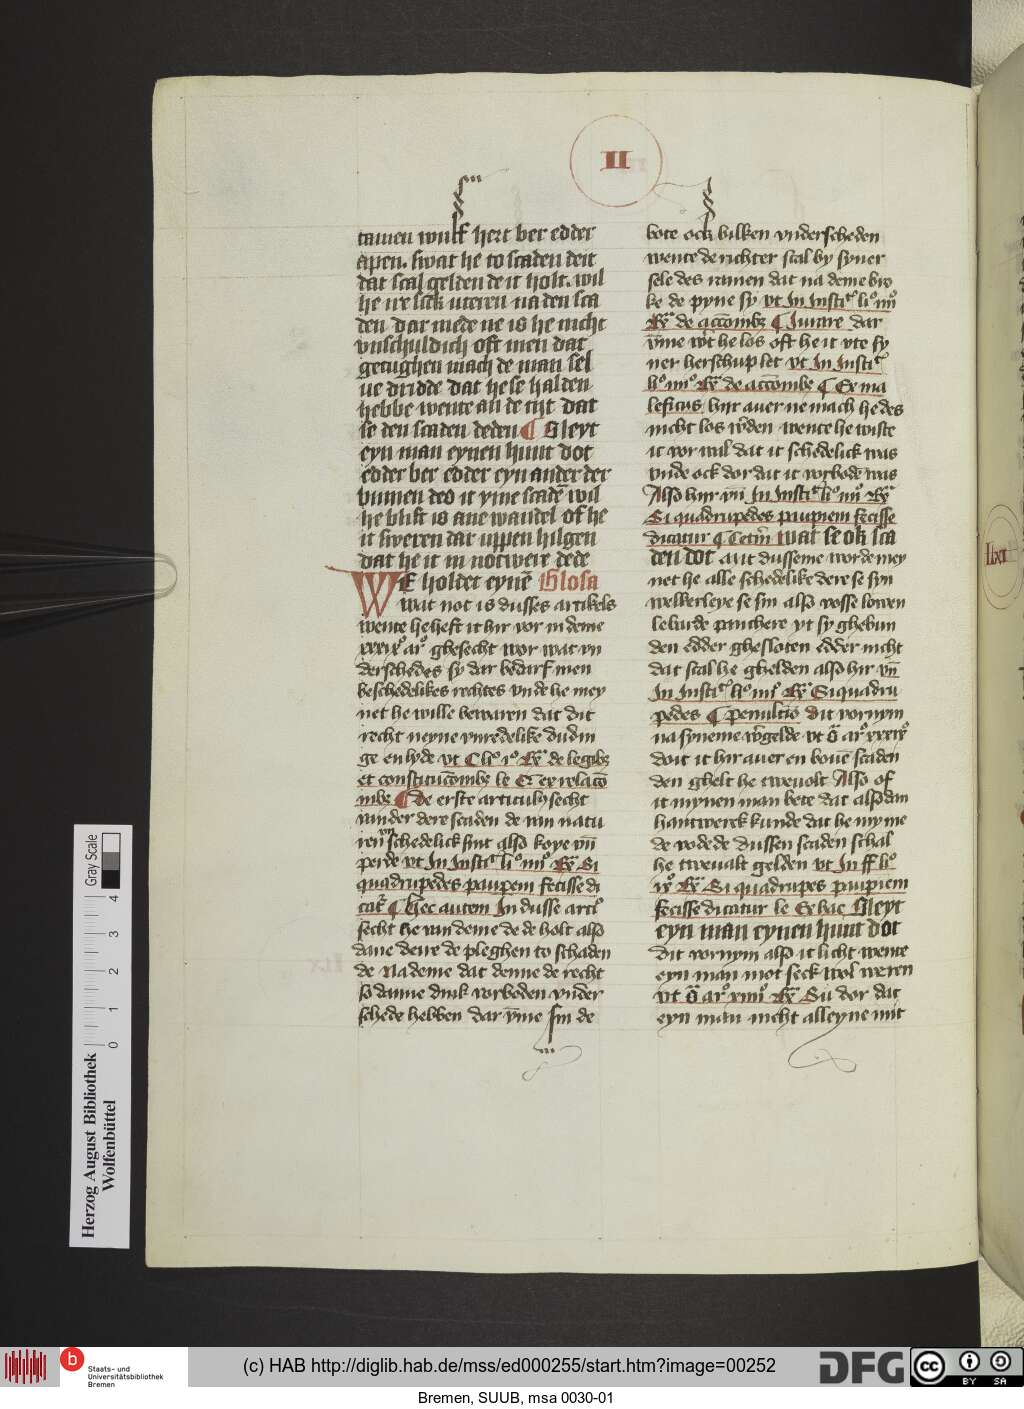 II
tamen wulf hert ber edder
apen. swat he to scaden deit
dat scal gelden deit holt. wil
he ne sick uteren na den sca
den dar mede ne is he nicht
vnschuldich oft men dat
getughen mach de man sel
ue dridde dat he se halden
hebbe wente an de tijt dat
se den scaden deden ¶ Sleyt
eyn man eynen hunt dot
edder ber edder eyn ander der
bynnen deo it yme scadē wil
he blift is ane wandel of he
it sweren dar uppen hilgen
dat he it in notwere dede
WE holdet eynē Glosa
wat not is dusses artikels
wente he heft it hir vor in deme
xxxix ar° ghesecht wor wat vn
derschedes sy dar bedarf men
beschedelikes rechtes vnde he mey
net he wille bewaren dat dit
recht neyne vnredelike dudin
ge en lyde vt C li° i° R͛ de legibz
et constitucōnibz le Et ex relacō
nibz ¶ De erste articulus secht
van der dere scaden de van natu
ren schedelick sint also koye vn̄
perde vt In Insti° li° iiij° R͛ Si
quadrupedes paupem fecisse di
cat͛ ¶ Hec autem In dusse arti°
secht he van deme de de holt also
dane dere de pleghen to schaden
de Na deme dat denne de recht
so danne dink vorboden vnder
schede hebben dar v̄me sin de
bote ock vilken vnderscheden
wente de richter scal by syner
sele des ramen dat na deme bro
ke de pyne sy vt In Insti° li° iiij°
R͛ de accōnibz ¶ Iurare dar
v̄me wͤrt he los oft he it vte sy
ner herschup let vt In Insti°
li° iiij° R͛ de accōnibz ¶ Ex ma
leficus hijr auer ne mach he des
nicht los wͤden wente he wiste
it vor wul dat it schedelick was
vnde ock dor dat it vorbodē was
Also hijr vn̄ In Insti° li° iiij° R͛
Si quadrupedes paupiem fecisse
dicatur ¶ Cetm̄ wat se ok sca
den dot Mit dusseme worde mey
net he alle schedelike dere se syn
welkerleye se sin also vosse lowen
leburde panthere yt sy ghebun
den edder ghesloten edder nicht
dat scal he ghelden also hir vn̄
In Insti° li° iiij° R͛ Si quadru
pedes ¶ penultio dit vornym
na syneme wͤgelde vt ō ar° xxxix°
doit it hir auer en bouē scaden
den ghelt he twevolt Also of
it mynen man bete dat also dan
hantwerck kunde dat he my me
de vodede dussen scaden schal
he twevalt gelden vt In ff li°
ix° R͛ Si quadrupes paupiem
fecisse dicatur le Ex hac Sleyt
eyn man eynen hunt dot
dit vornym also it licht wente
eyn man mot seck wol weren
vt ō ar° xiiij° R͛ Su dor dat
eyn man nicht alleyne mit
lixi
Gray Scale
0 1 2 3 4
Herzog August Bibliothek
Wolfenbüttel
b
Staats- und
Universitätsbibliothek
Bremen
(c) HAB http://diglib.hab.de/mss/ed000255/start.htm?image=00252
DFG
cc BY SA
Bremen, SUUB, msa 0030-01